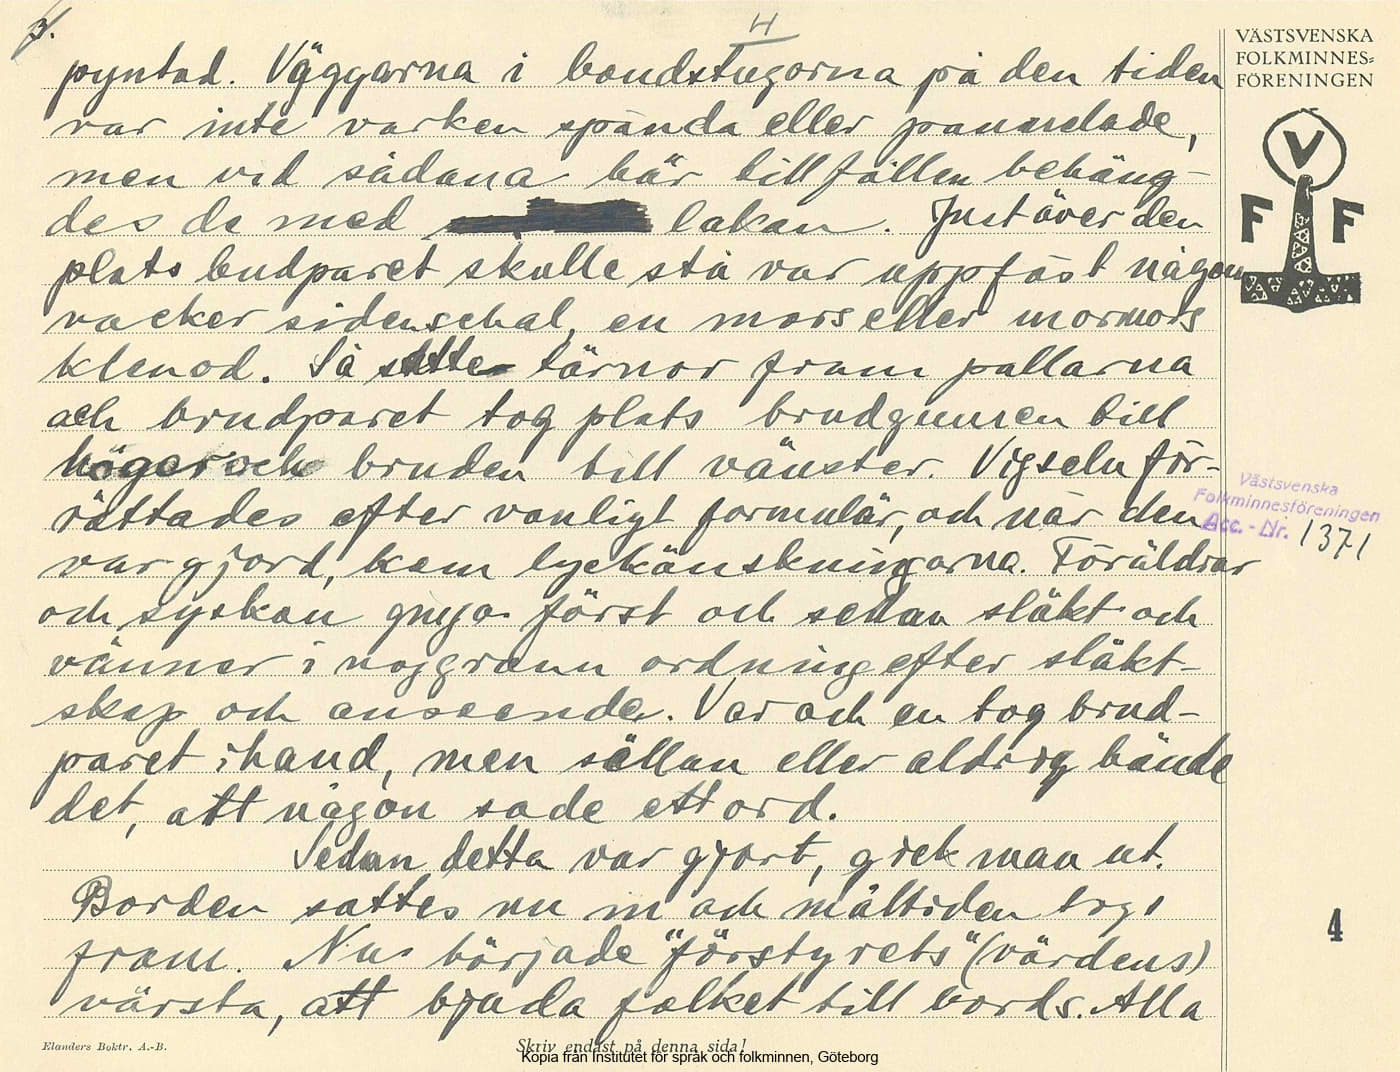 3.
4
VÄSTSVENSKA
FOLKMINNES=
FÖRENINGEN
pyntad. Väggarna i bondstugorna på den tiden
var inte varken spända eller pannelade,
men vid sådana här tillfällen behäng-
des de med lakan. Just över den
plats brudparet skulle stå var uppfäst någon
vacker sidenschal, en mors eller mormors
klenod. Så satte tärnor fram pallarna
och brudparet tog plats brudgummen till
höger och bruden till vänster. Vigseln för-
rättades efter vanligt formulär, och när den
var gjord, kom lyckönskningarna. Föräldrar
och syskon gingo först och sedan släkt och
vänner i noggrann ordning efter släkt-
skap och anseende. Var och en tog brud-
paret i hand, men sällan eller aldrig hände
det, att någon sade ett ord.
Sedan detta var gjort, gick man ut.
Borden sattes nu in och måltiden togs
fram. Nu började "förstyrets" (värdens)
värsta, att bjuda folket till bords. Alla
V
F F
Västsvenska
Folkminnesföreningen
Acc. - Nr. 1371
4
Elanders Boktr. A.-B.
Skriv endast på denna sida!
Kopia från Institutet för språk och folkminnen, Göteborg